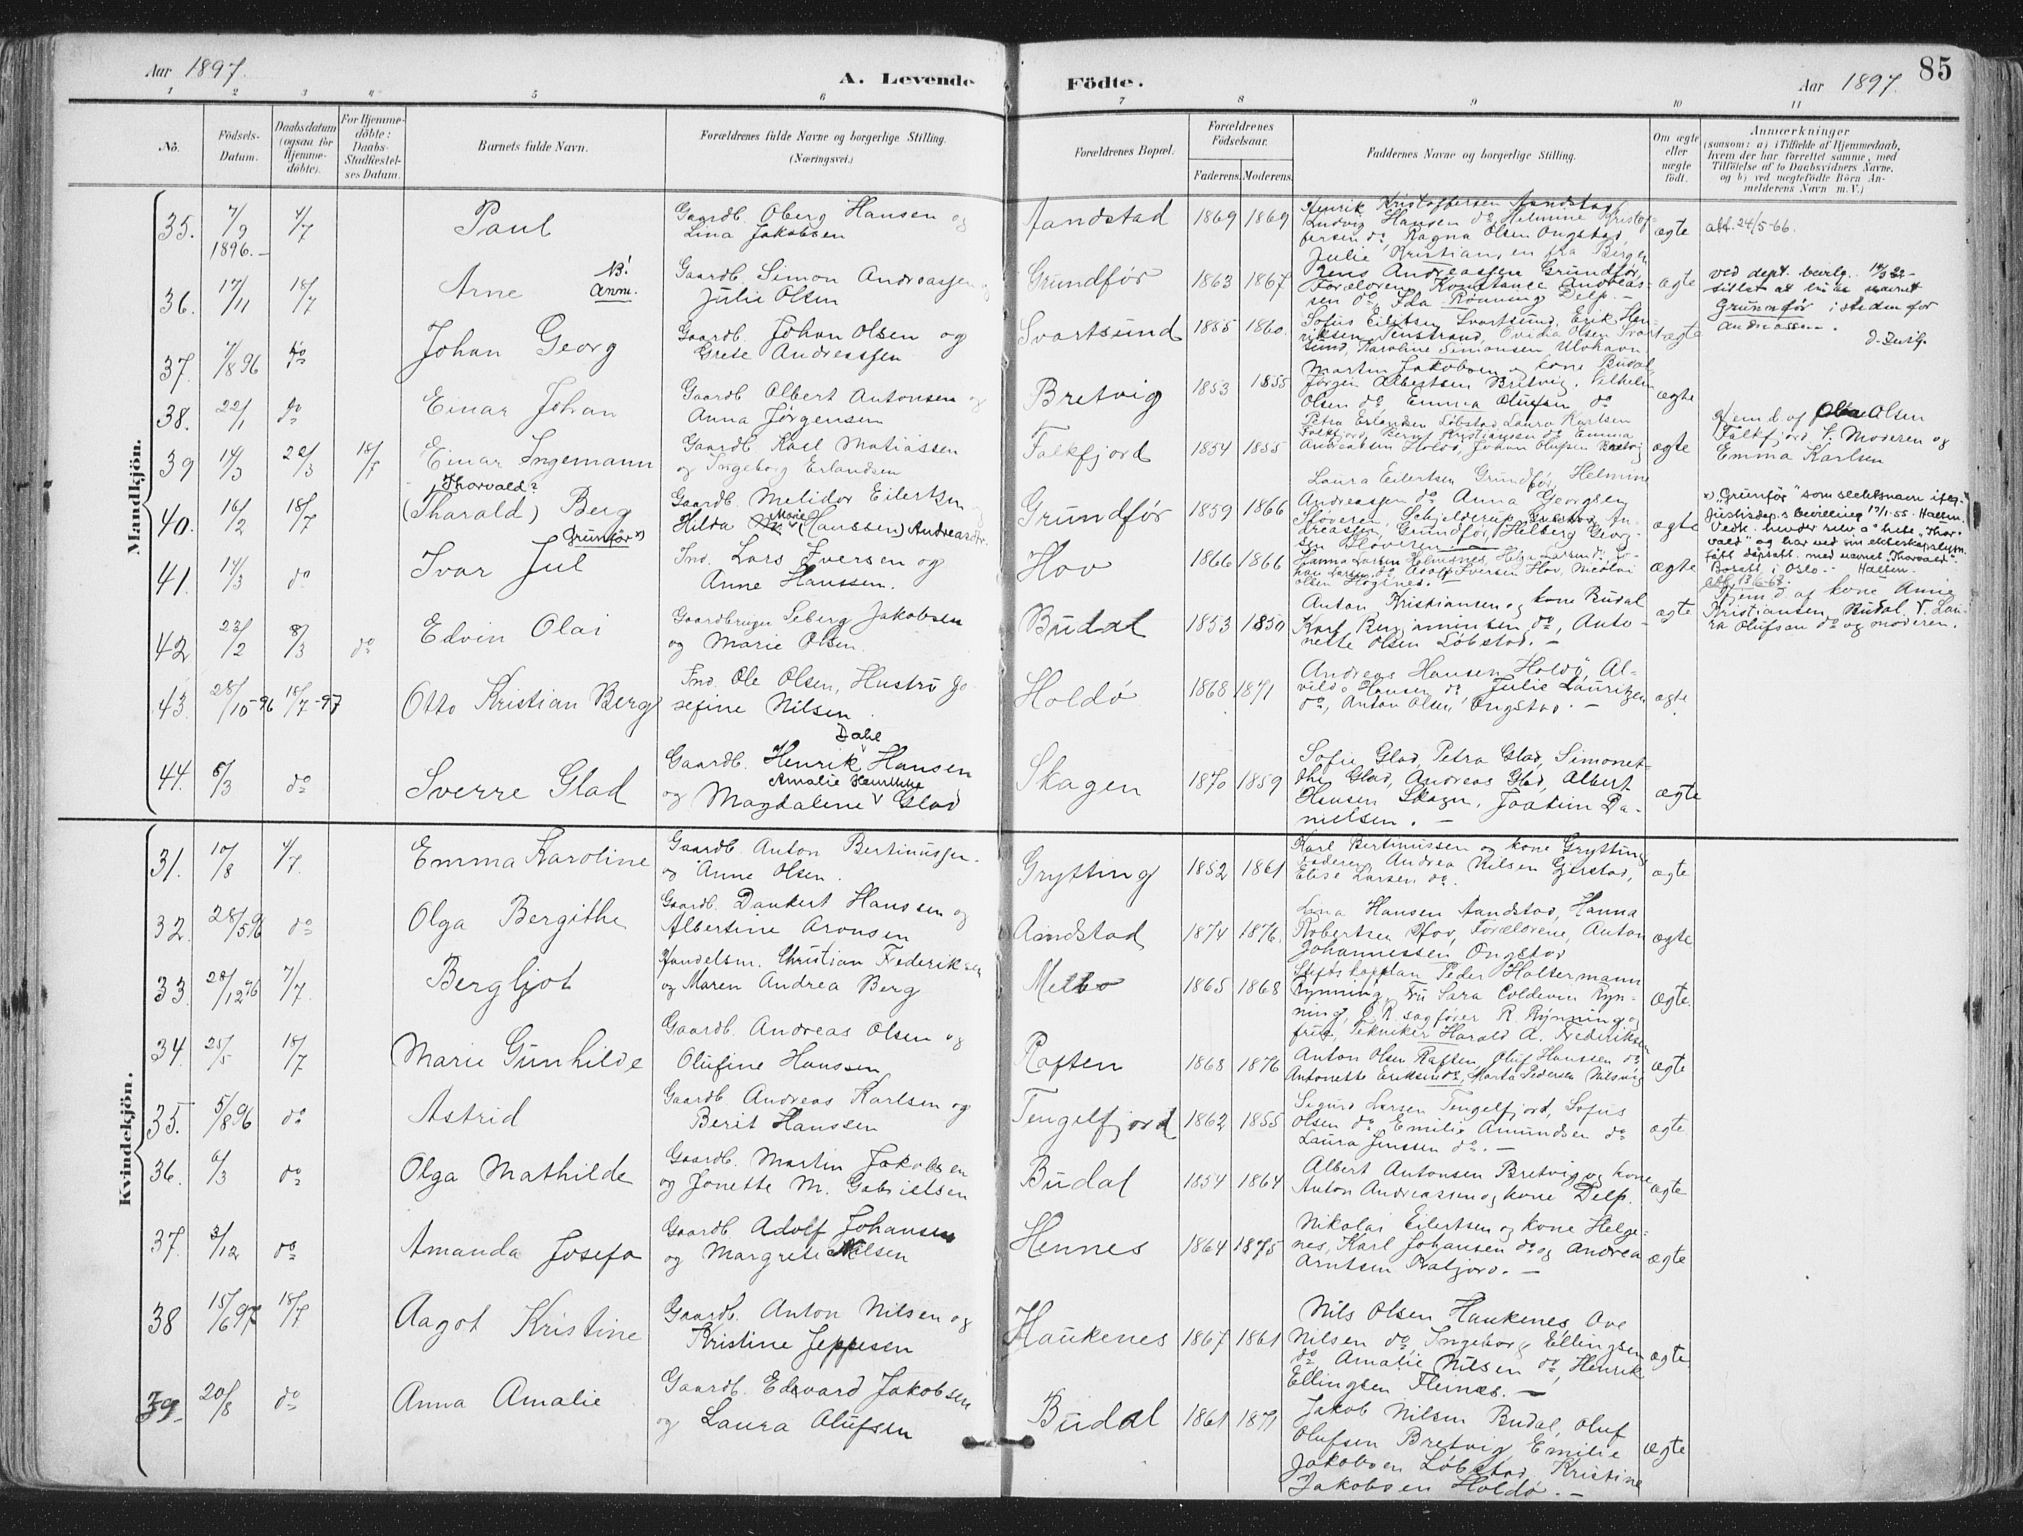 Aar 1897.
A. Levende Födte.
Aar 1897.
85
1 2 3 4 5 6 7 8 9 10 11
No.
Födsels-Datum.
Daabsdatum (ogsaa for Hjemmedöbte).
For Hjemmedöbte: Daabs-Stadfæstelses Datum.
Barnets fulde Navn.
Forældrenes fulde Navne og borgerlige Stilling.
(Næringsvei.)
Forældrenes Bopæl.
Forældrenes Födselsaar.
Faderens. Moderens.
Faddernes Navne og borgerlige Stilling.
Om ægte eller uægte födt.
Anmærkninger
(saasom: a) i Tilfælde af Hjemmedaab,
hvem der har forrettet samme, med
Tilföielse af to Daabsvidners Navne,
og b) ved uægtefödte Börn An-
melderens Navn m. V.)
Mandkjön.
35. 7/9 1896. 4/7 Paul
Gaardb. Oberg Hansen og
Lina Jakobsen
Aandstad 1869 1869
Henrik Kristoffersen Aandstad,
Ludvig Hansen do, Helmine Kristof-
fersen do, Ragna Olsen Ongstad,
Julie Kristiansen fra Bergen
ægte
att. 24/5-66.
36. 17/11 18/7 Arne
NB! Anm.
Gaardb. Simon Andreassen og
Julie Olsen
Grundfør 1863 1867
Rens Andreassen Grundfør,
Forældrene, Konstance Andreas-
sen do, Ida Rønning Delp. —
ægte
ved dept. bevilg.
tillat at bruke navnet
Grunnfør istedenfor
Andreassen.
37. 7/8 96 do Johan Georg
Gaardb. Johan Olsen og
Grete Andreassen
Svartsund 1855 1860.
Sofus Eilitsen Svartsund, Erik Hen-
riksen Tenstrand, Ovidia Olsen Svart-
sund, Karoline Simonsen Ulvhavn
ægte
38. 22/1 do Einar Johan
Gaardb. Albert Antonsen og
Anna Jørgensen
Bretvig 1853 1855
Martin Jakobsen og kone Budal,
Jørgen Albertsen Bretvig, Vilhelm
Olsen do, Emma Olufsen do
ægte
39 14/3 22/3 18/7 Einar Ingemann
Gaardb. Karl Matiassen
og Ingeborg Erlandsen
Falkfjord 1854 1855
Petra Erlandsen Løbstad, Laura Karlsen
Falkfjord, Bernt Kristiansen do, Emma
Andreassen Holdø, Johan Olufsen Bretvig
ægte
Hjemd. af Olea Olsen
Falkfjord T. Moderen og
Emma Karlsen
40. 16/2 18/7 Thorvald?
(Tharald) Berg
Grunfør x)
Gaardb. Melidor Eilertsen og
Hilda Marie (Hanssen) Andreasdtr.
Grundfør 1859 1866
Laura Eilertsen Grundfør, Helmine
Andreassen do, Anna Georgsen
Sløveren, Schjelderup, An-
dreassen, Grundfør, Helberg Georg-
sen Sløveren
ægte
x) "Grunfør" som slektsnavn iflg.
Justisdep.s bevilling 17/1-55. Hallm.
Vedk. hevder selv å hete "Thor-
vald" og har ved sin ekteskapslysn.
fått dåpsatt. med navnet "Thorvald".
Bosatt i Oslo. — Hallm.
att. 13/6-67.
41. 14/3 do Ivar Jul
Ind. Lars Iversen og
Anne Hanssen.
Hov 1866 1866
Hanna Larsen Helmones, Helga Larsen do, Jo-
han Larsen do, Adolf Iversen Hov, Nicolai
Olsen Høgtnes.
ægte
42 23/2 8/3 do Edvin Olai
Gaardbruger Seberg Jakobsen
og Marie Olsen.
Budal 1853 1850
Anton Kristiansen og kone Budal
Karl Benjaminsen do, Anto-
nette Olsen Løbstad. —
ægte
Hjemd. af kone Anne
Kristiansen, Budal T. Lau-
ra Olufsen do og moderen.
43. 28/10-96 18/7-97 Otto Kristian Berg
Ind. Ole Olsen, Hustru Jo-
sefine Nilsen.
Holdø 1868 1871
Andreas Hansen Holdø, Al-
vilda Hansen do, Julie Lauritzen
do, Anton Olsen Ongstad. —
ægte
44. 6/3 do Sverre Glad
Gaardb. Henrik Hansen Dahl
Amalie Henrikke
og Magdalene Glad
Skagen 1870 1859
Sofie Glad, Petra Glad, Simonet-
the Glad, Andreas Glad, Albert
Hansen Skagn, Joakim Da-
nielsen. —
ægte
Kvindekjön.
31. 10/8 4/7. Emma Karoline
Gaardb. Anton Bertinussen.
og Anne Olsen.
Grytting 1852 1861
Karl Bertinussen og kone Grytting
Faderen, Andrea Nilsen Gjerstad,
Elise Larsen do.
ægte
32. 28/5 96 do Olga Bergithe
Gaardb. Dankert Hanssen og
Albertine Aronsen
Aandstad 1874 1876.
Lina Hansen Aandstad, Hanna
Robertsen Hov, Forældrene, Anton
Johannessen Ongstad
ægte
33. 28/12 96 7/7. Bergljot
Handelsm. Christian Frederiksen
og Maren Andrea Berg
Melbo 1865 1868
Stiftskapplan Peder Holtermann
Rynning, Fru Sara Coldevin Ryn-
ning, O. R. sagfører R. Rynning og
frue, Tekniker Harald A. Frederiksen
ægte.
34. 25/5 18/7 Marie Gunhilde
Gaardb. Andreas Olsen og
Olufine Hanssen
Raften 1868 1876
Anton Olsen Raften, Oluf Hanssen do,
Antonette Eriksen do, Marta Pedersen Nilsvig
ægte
35. 5/8 96 do Astrid
Gaardb. Andreas Karlsen og
Berit Hanssen
Tengelfjord 1862 1855
Sigurd Larsen Tengelfjord, Sofus
Olsen do, Emilie Amundsen do
Laura Jenssen do. —
ægte
36. 6/3 do Olga Mathilde
Gaardb. Martin Jakobsen
og Jonette M. Gabrielsen
Budal 1854 1864
Albert Antonsen Bretvig og kone
Anton Andreassen og kone Delp.
ægte
37. 3/12 do Amanda Josefa
Gaardb. Adolf Johansen
og Margrete Nilsen
Hennes 1864 1875
Nikolai Eilertsen og kone Helge-
nes, Karl Johansen do og Andrea
Arntsen Kaljord. —
ægte
38 15/6 97 18/7 Aagot Kristine
Gaardb. Anton Nilsen og
Kristine Jeppesen
Haukenes 1867 1861
Nils Olsen Haukenes, Ove
Nilsen do, Ingeborg Ellingsen
do, Amalie Nilsen do, Henrik
Ellingsen Fleines. —
ægte
39. 20/8 do Anna Amalie
Gaardb. Edevard Jakobsen
og Laura Olufsen
Budal 1861 1871
Jakob Nilsen Budal, Oluf
Olufsen Bretvig, Emilie
Jakobsen Løbstad, Kristine
Jakobsen Holdø. —
ægte